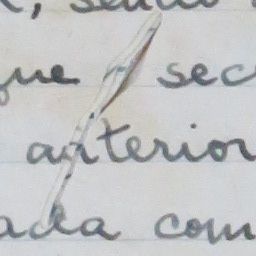 que sec
anterior
ada com